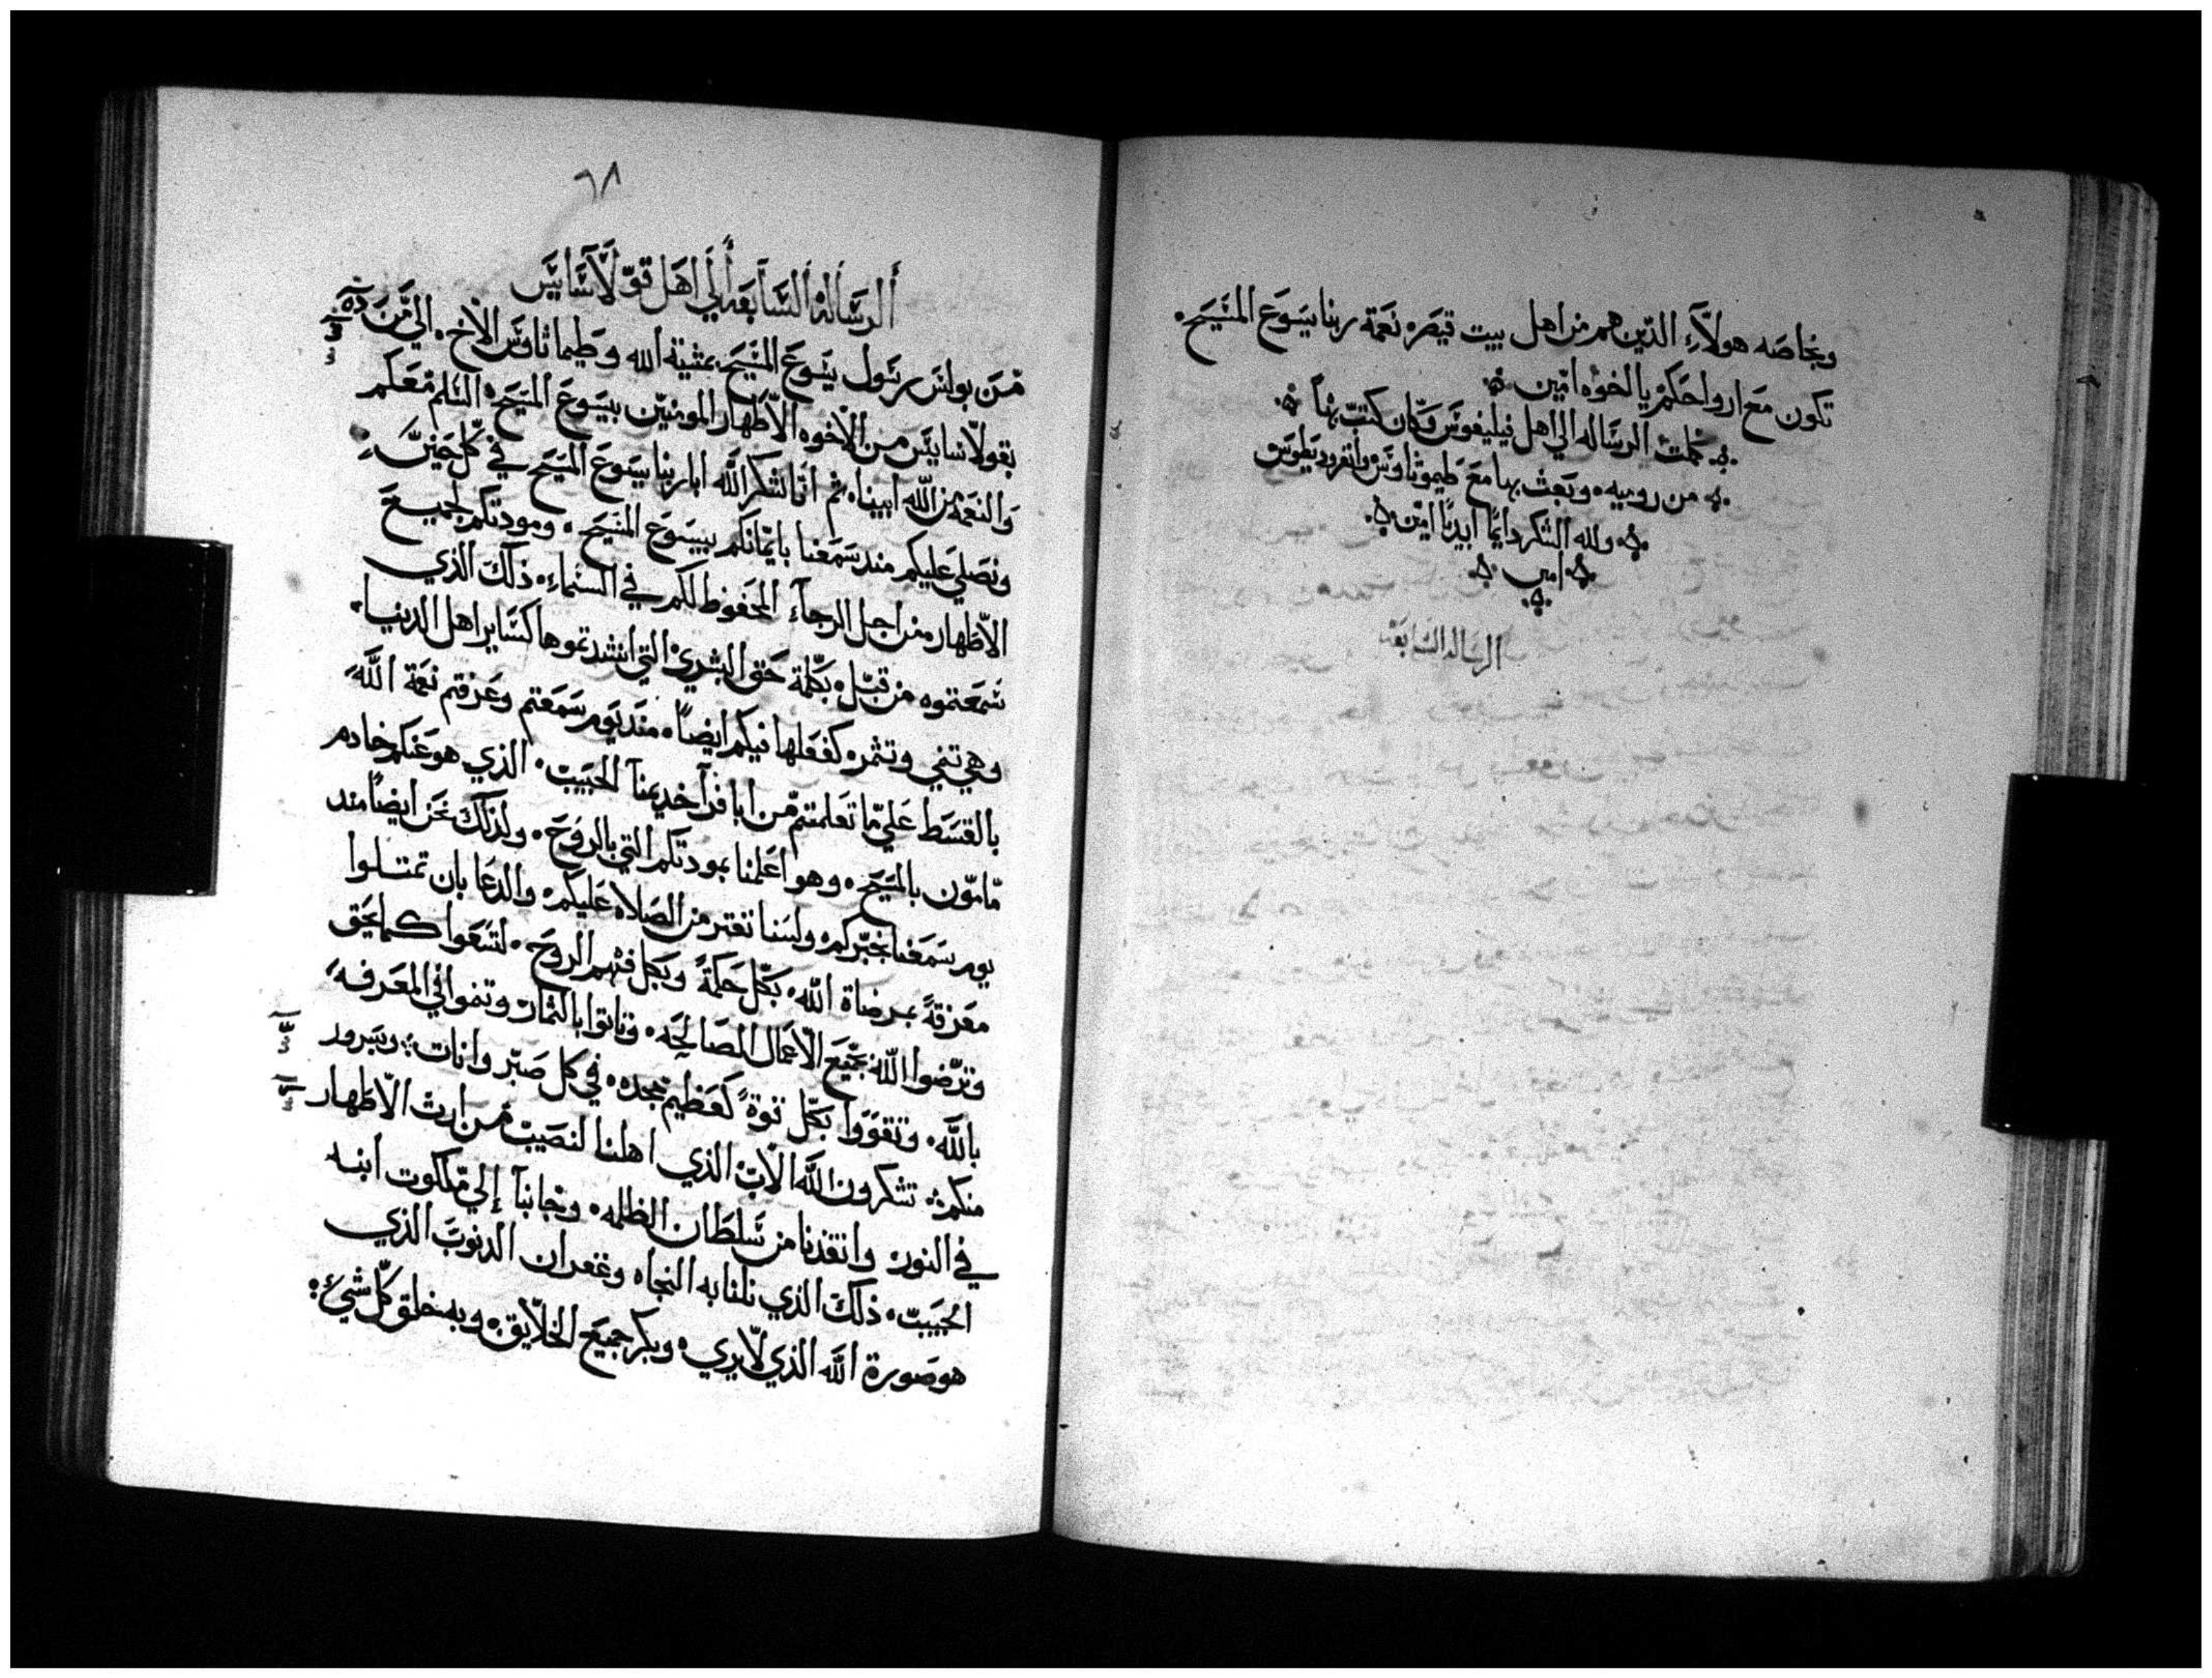 وبخاصه هولآء الدين هم من اهل بيت قيصر. نعمة ربنا يسوع المسيح.
تكون مع ارواحكم يا اخوه امين
كملت الرساله الي اهل فيليفوس وكان كتب بها
من روميه. وبعث بها مع طيموثاوس وانفروديطوس
ولله الشكر دايمًا ابديًا امين
امين
الرساله السابعه
٦٨
الرساله السابعه الي اهل قولاسايس
من بولس رسول يسوع المسيح بمشية الله وطيماثاوس الاخ. الي من
بقولاسايس من الاخوه الاطهار المومنين بيسوع المسيح السلم معكم
والنعمه من الله ابينا. ثم انا نشكر الله ابا ربنا يسوع المسيح في كل حين
ونصلي عليكم مند سمعنا بايمانكم بيسوع المسيح. ومودتكم لجميع
الاطهار. من اجل الرجآء المحفوظ لكم في السماء. ذلك الذي
سمعتموه من قبل. بكلمة حق البشري التي انشدتموها كساير اهل الدنيا.
وهي تنمي وتثمر. كفعلها فيكم ايضًا. مند يوم سمعتم وعرفتم نعمة الله
بالقسط علي ما تعلمتم من ابافرا خديمنا الحبيب. الذي هو عنكم خادم
مامون بالمسيح. وهو اعلمنا بمودتكم التي بالروح. ولذلك نحن ايضًا مند
يوم سمعنا خبركم ولسنا نفتر من الصلاه عليكم والدعا بان تمتلوا
معرفة بمرضاة الله. بكل حكمة وبكل فهم الروح. لتسعوا كما يحق
وترضوا الله بجميع الاعمال الصالحه. وتاتوا بالثمار وتنموا في المعرفه
بالله. وتقووا بكل قوة كعظيم مجده. في كل صبر واناة: وبسرور
منكم تشكرون الله الاب الذي اهلنا لنصيب من ارث الاطهار
في النور وانقدنا من سلطان الظلمه. وجانبا إلي ملكوت ابنه
الحبيب. ذلك الذي نلنا به النجاه وغفران الدنوب الذي
هو صورة الله الذي لا يري. وبكر جميع الخلايق. وبه خلق كل شيء: